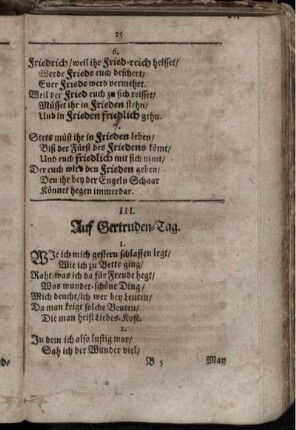 25
6.
Friedrich/ weil ihr Fried-reich heisset/
Werde Friede euch beschert/
Euer Friede werd vermehrt.
Weil der Fried euch zu sich reisset/
Müsset ihr in Frieden stehn/
Und in Frieden friedlich gehn.
7.
Stets müst ihr in Frieden leben/
Biß der Fürst des Friedens kömt/
Und euch friedlich mit sich nimt/
Der euch wird den Frieden geben/
Den ihr bey der Engeln Schaar
Könnet hegen immerdar.
III.
Auf Gertruden-Tag.
1.
WIe ich mich gestern schlaffen legt/
Wie ich zu Bette ging/
Raht/ was ich da für Freude hegt/
Was wunder-schöne Ding/
Mich deucht/ ich wer bey Leuten/
Da man krigt solche Beuten/
Die man heist Liebes-Kost.
2.
In dem ich also lustig war/
Sah ich der Wunder viel/
B 5 May